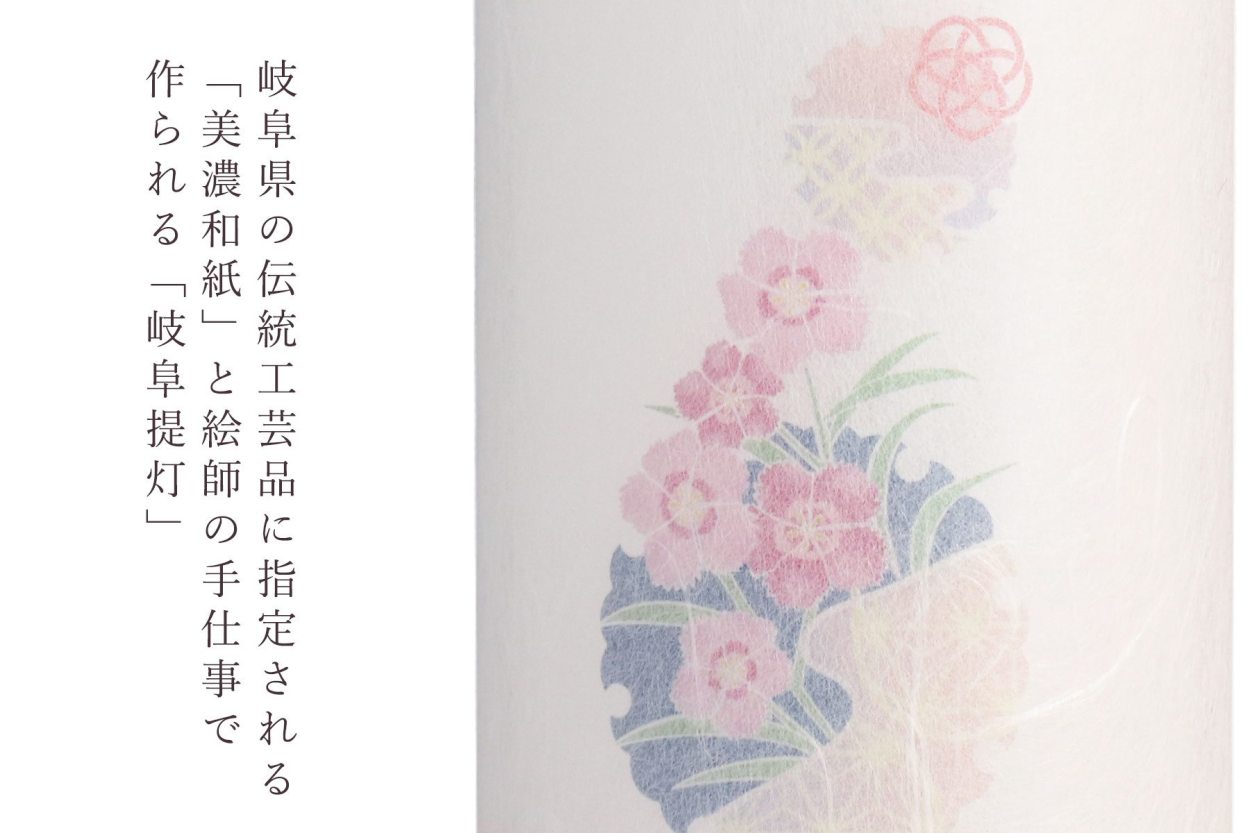 岐阜県の伝統工芸品に指定される
「美濃和紙」と絵師の手仕事で
作られる「岐阜提灯」